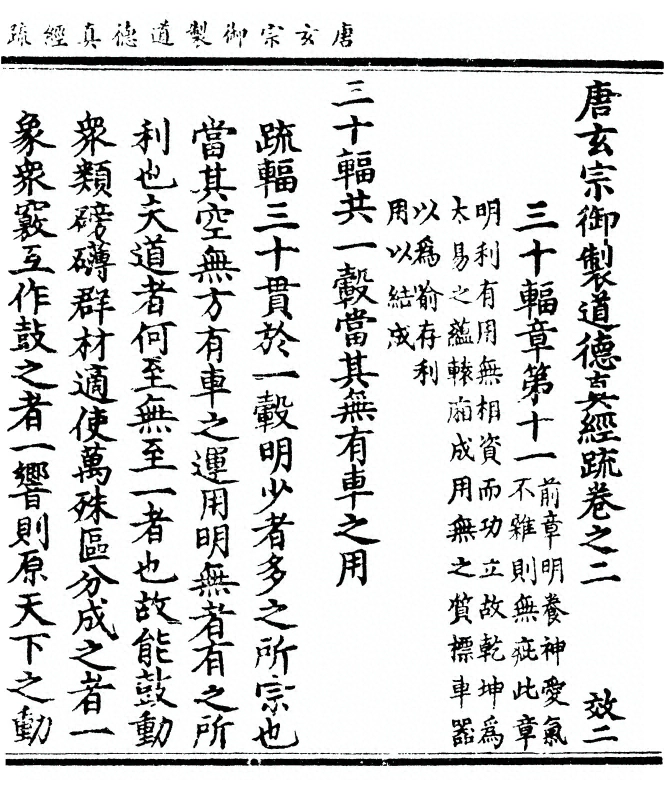 唐玄宗御製道德真經疏
唐玄宗御製道德真經疏卷之二 效二
三十輻章第十一
前章明養神愛氣
不雜則無疵此章
明利有用無相資而功立故乾坤爲
大易之蘊轅廂成用無之質標車器
以爲喻存利
用以結成
三十輻共一轂當其無有車之用
疏輻三十貫於一轂明少者多之所宗也
當其空無方有車之運用明無者有之所
利也夫道者何至無至一者也故能鼓動
衆類磅礴群材適使萬殊區分成之者一
象衆竅互作鼓之者一響則原天下之動